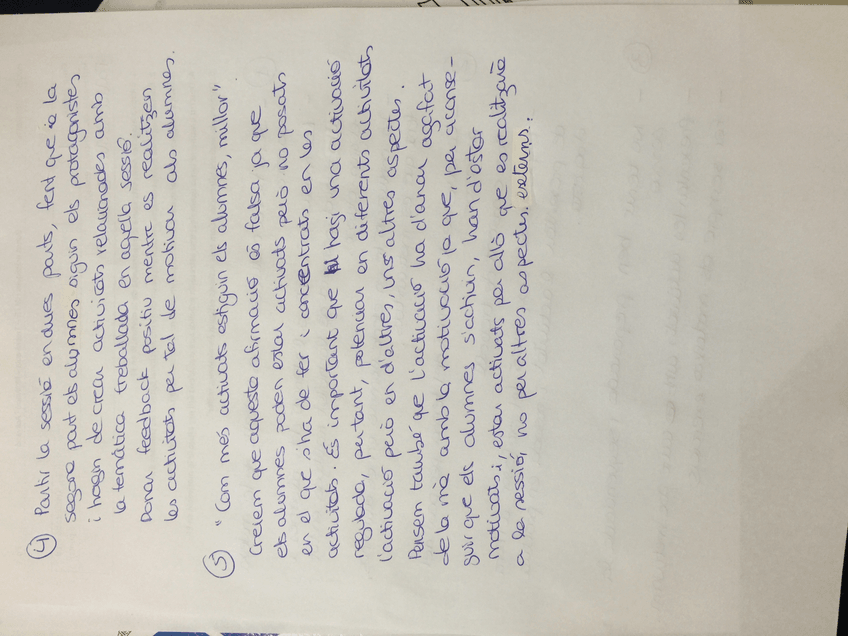 ④ Partir la sessió en dues parts, fent que a la
segona part els alumnes siguin els protagonistes
i hagin de crear activitats relacionades amb
la temàtica treballada en aquella sessió.
Donar feedback positiu mentre es realitzen
les activitats per tal de motivar als alumnes.
⑤ "Com més activats estiguin els alumnes, millor"
Creiem que aquesta afirmació és falsa ja que
els alumnes poden estar activats però no posats
en el que s'ha de fer i concentrats en les
activitats. És important que hi hagi una activació
regulada, per tant, potenciar en diferents activitats
l'activació però en d'altres, uns altres aspectes.
Pensem també que l'activació ha d'anar agafat
de la mà amb la motivació ja que, per aconse-
guir que els alumnes s'activin, han d'estar
motivats i, estar activats per allò que es realitzarà
a la sessió, no per altres aspectes externs.